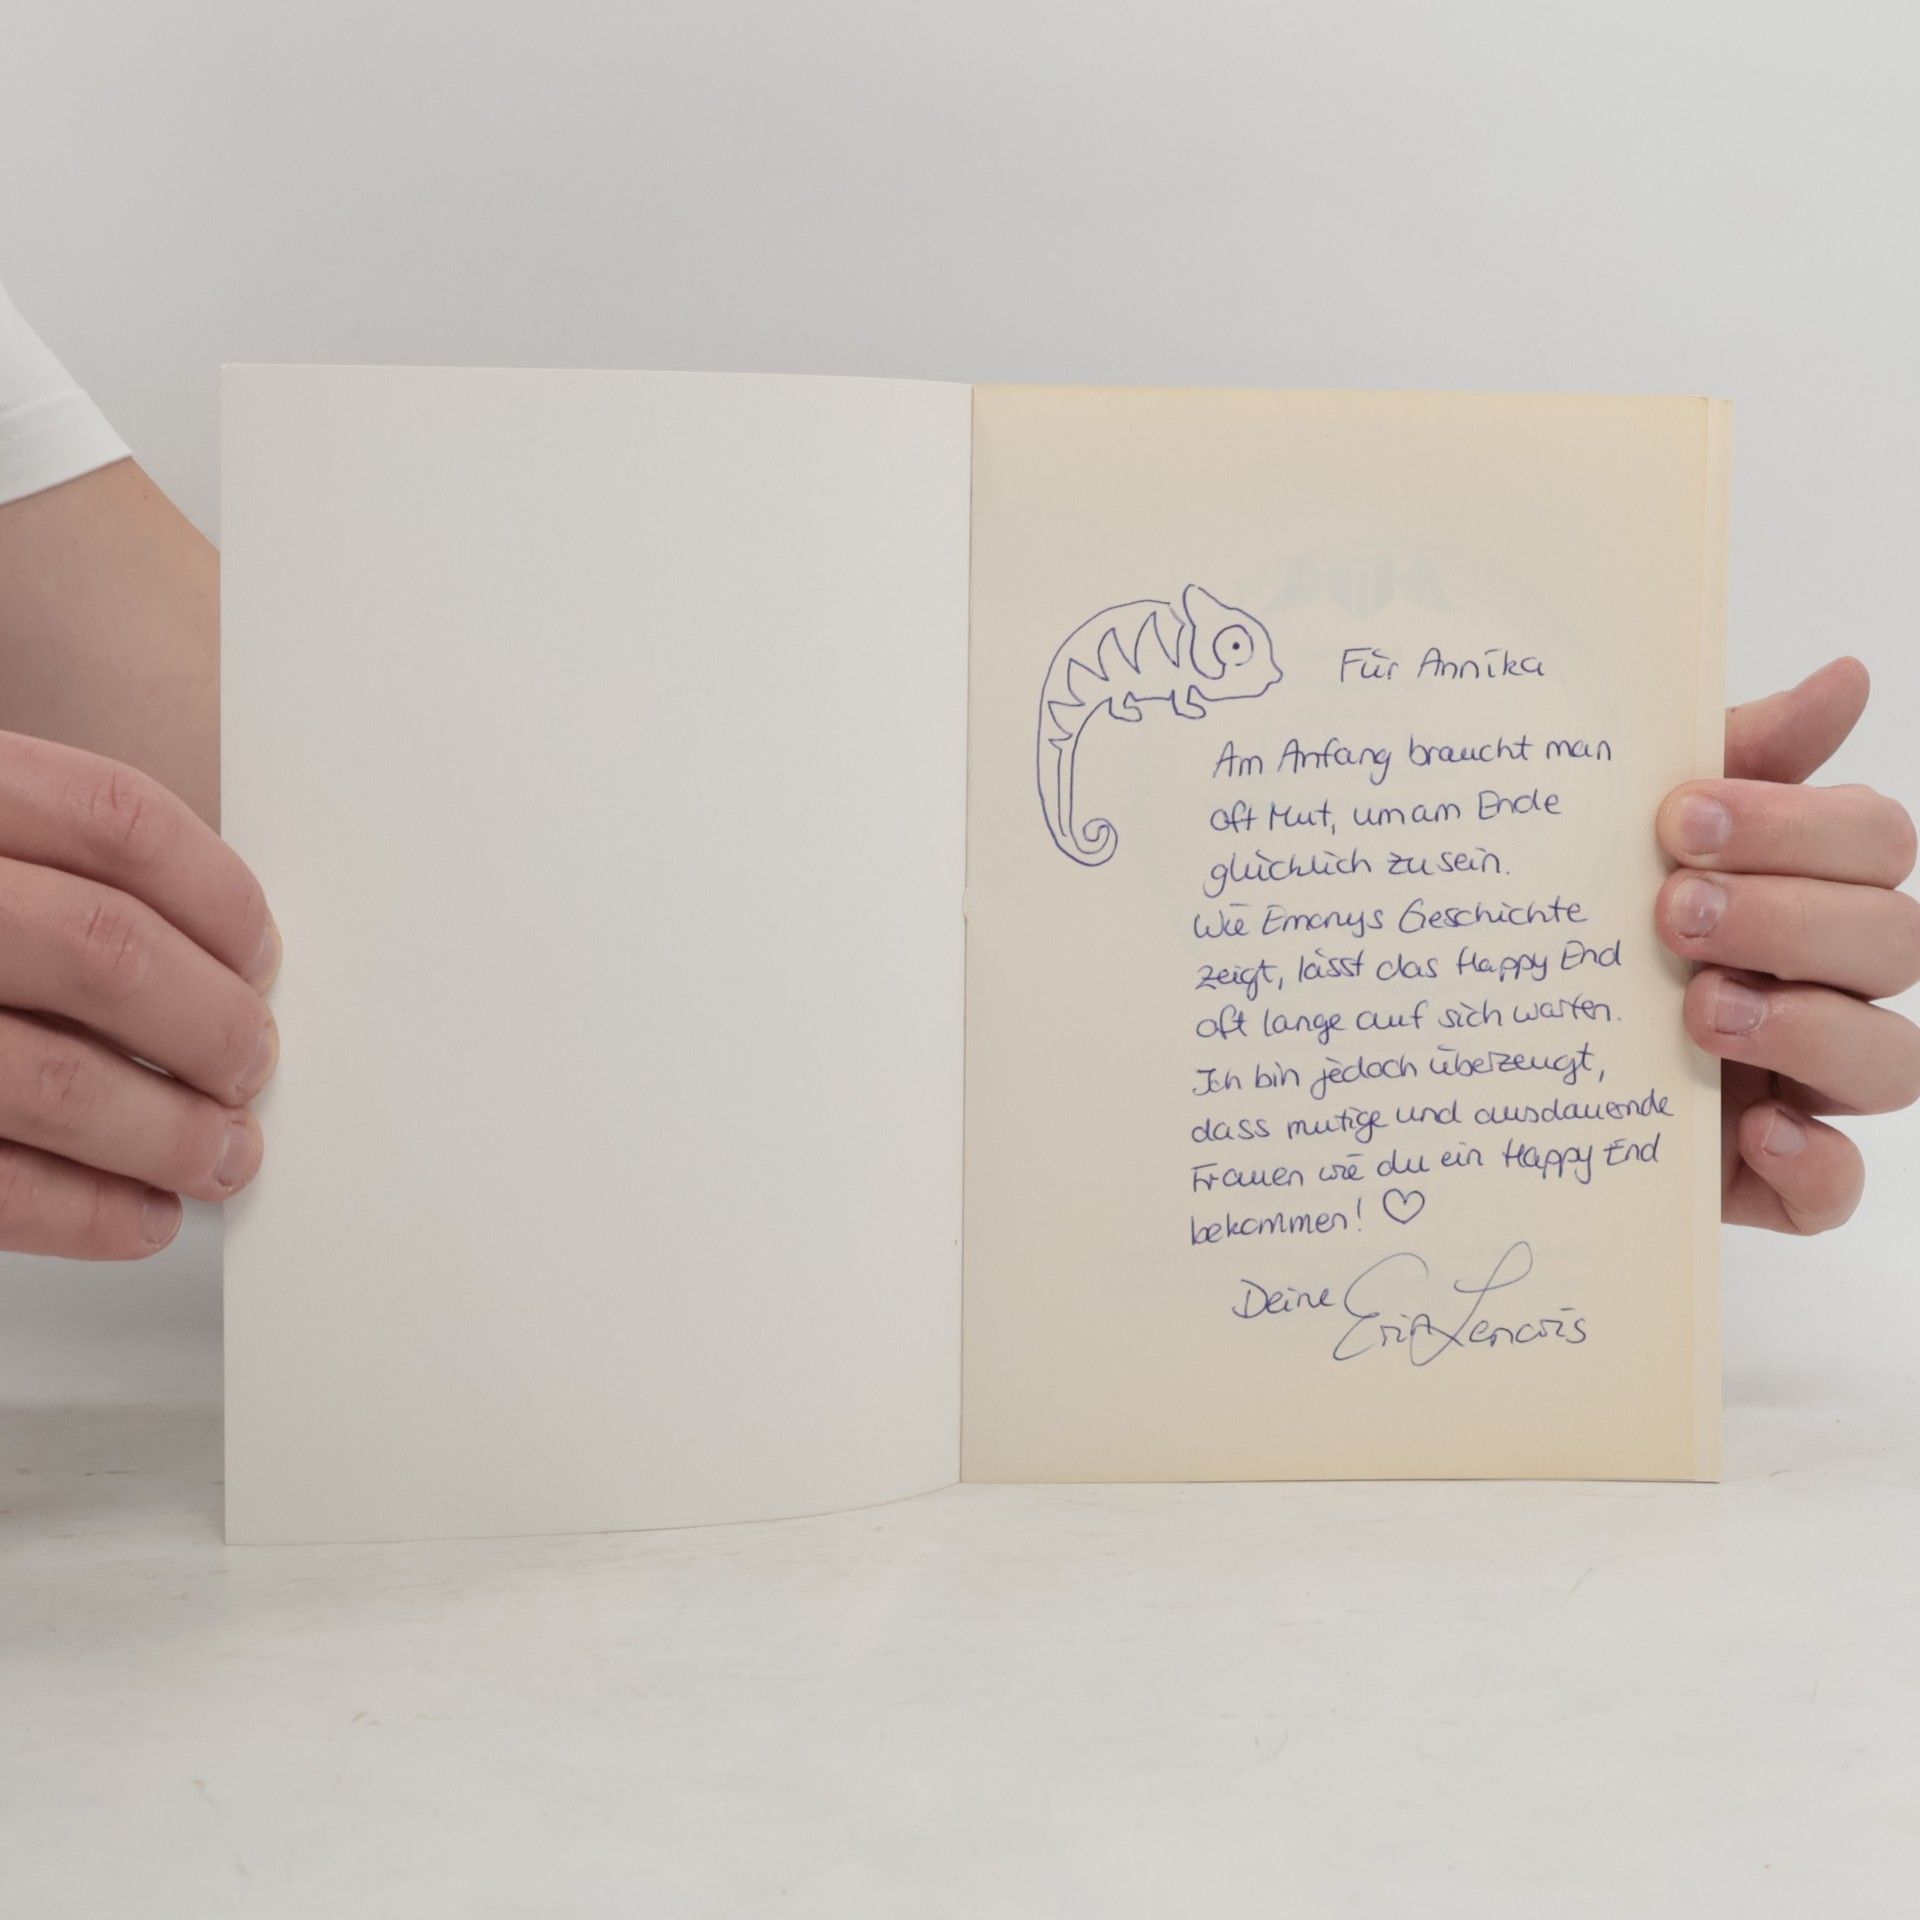 Für Annika
Am Anfang braucht man
oft Mut, um am Ende
glücklich zu sein.
Wie Emonys Geschichte
zeigt, lässt das Happy End
oft lange auf sich warten.
Ich bin jedoch überzeugt,
dass mutige und ausdauernde
Frauen wie du ein Happy End
bekommen! ♡
Deine